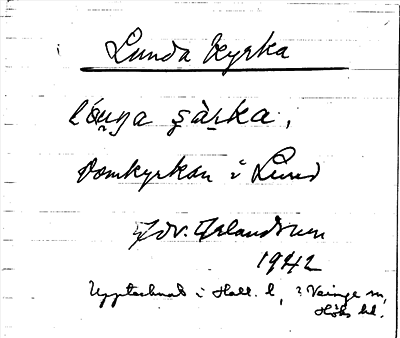 Lunda kyrka
lóuŋa şàrka,
Domkyrkan i Lund
Edv. Erlandsson
1942
Upptecknat i Hall. l, ? Veinge sn,
Höks hd.